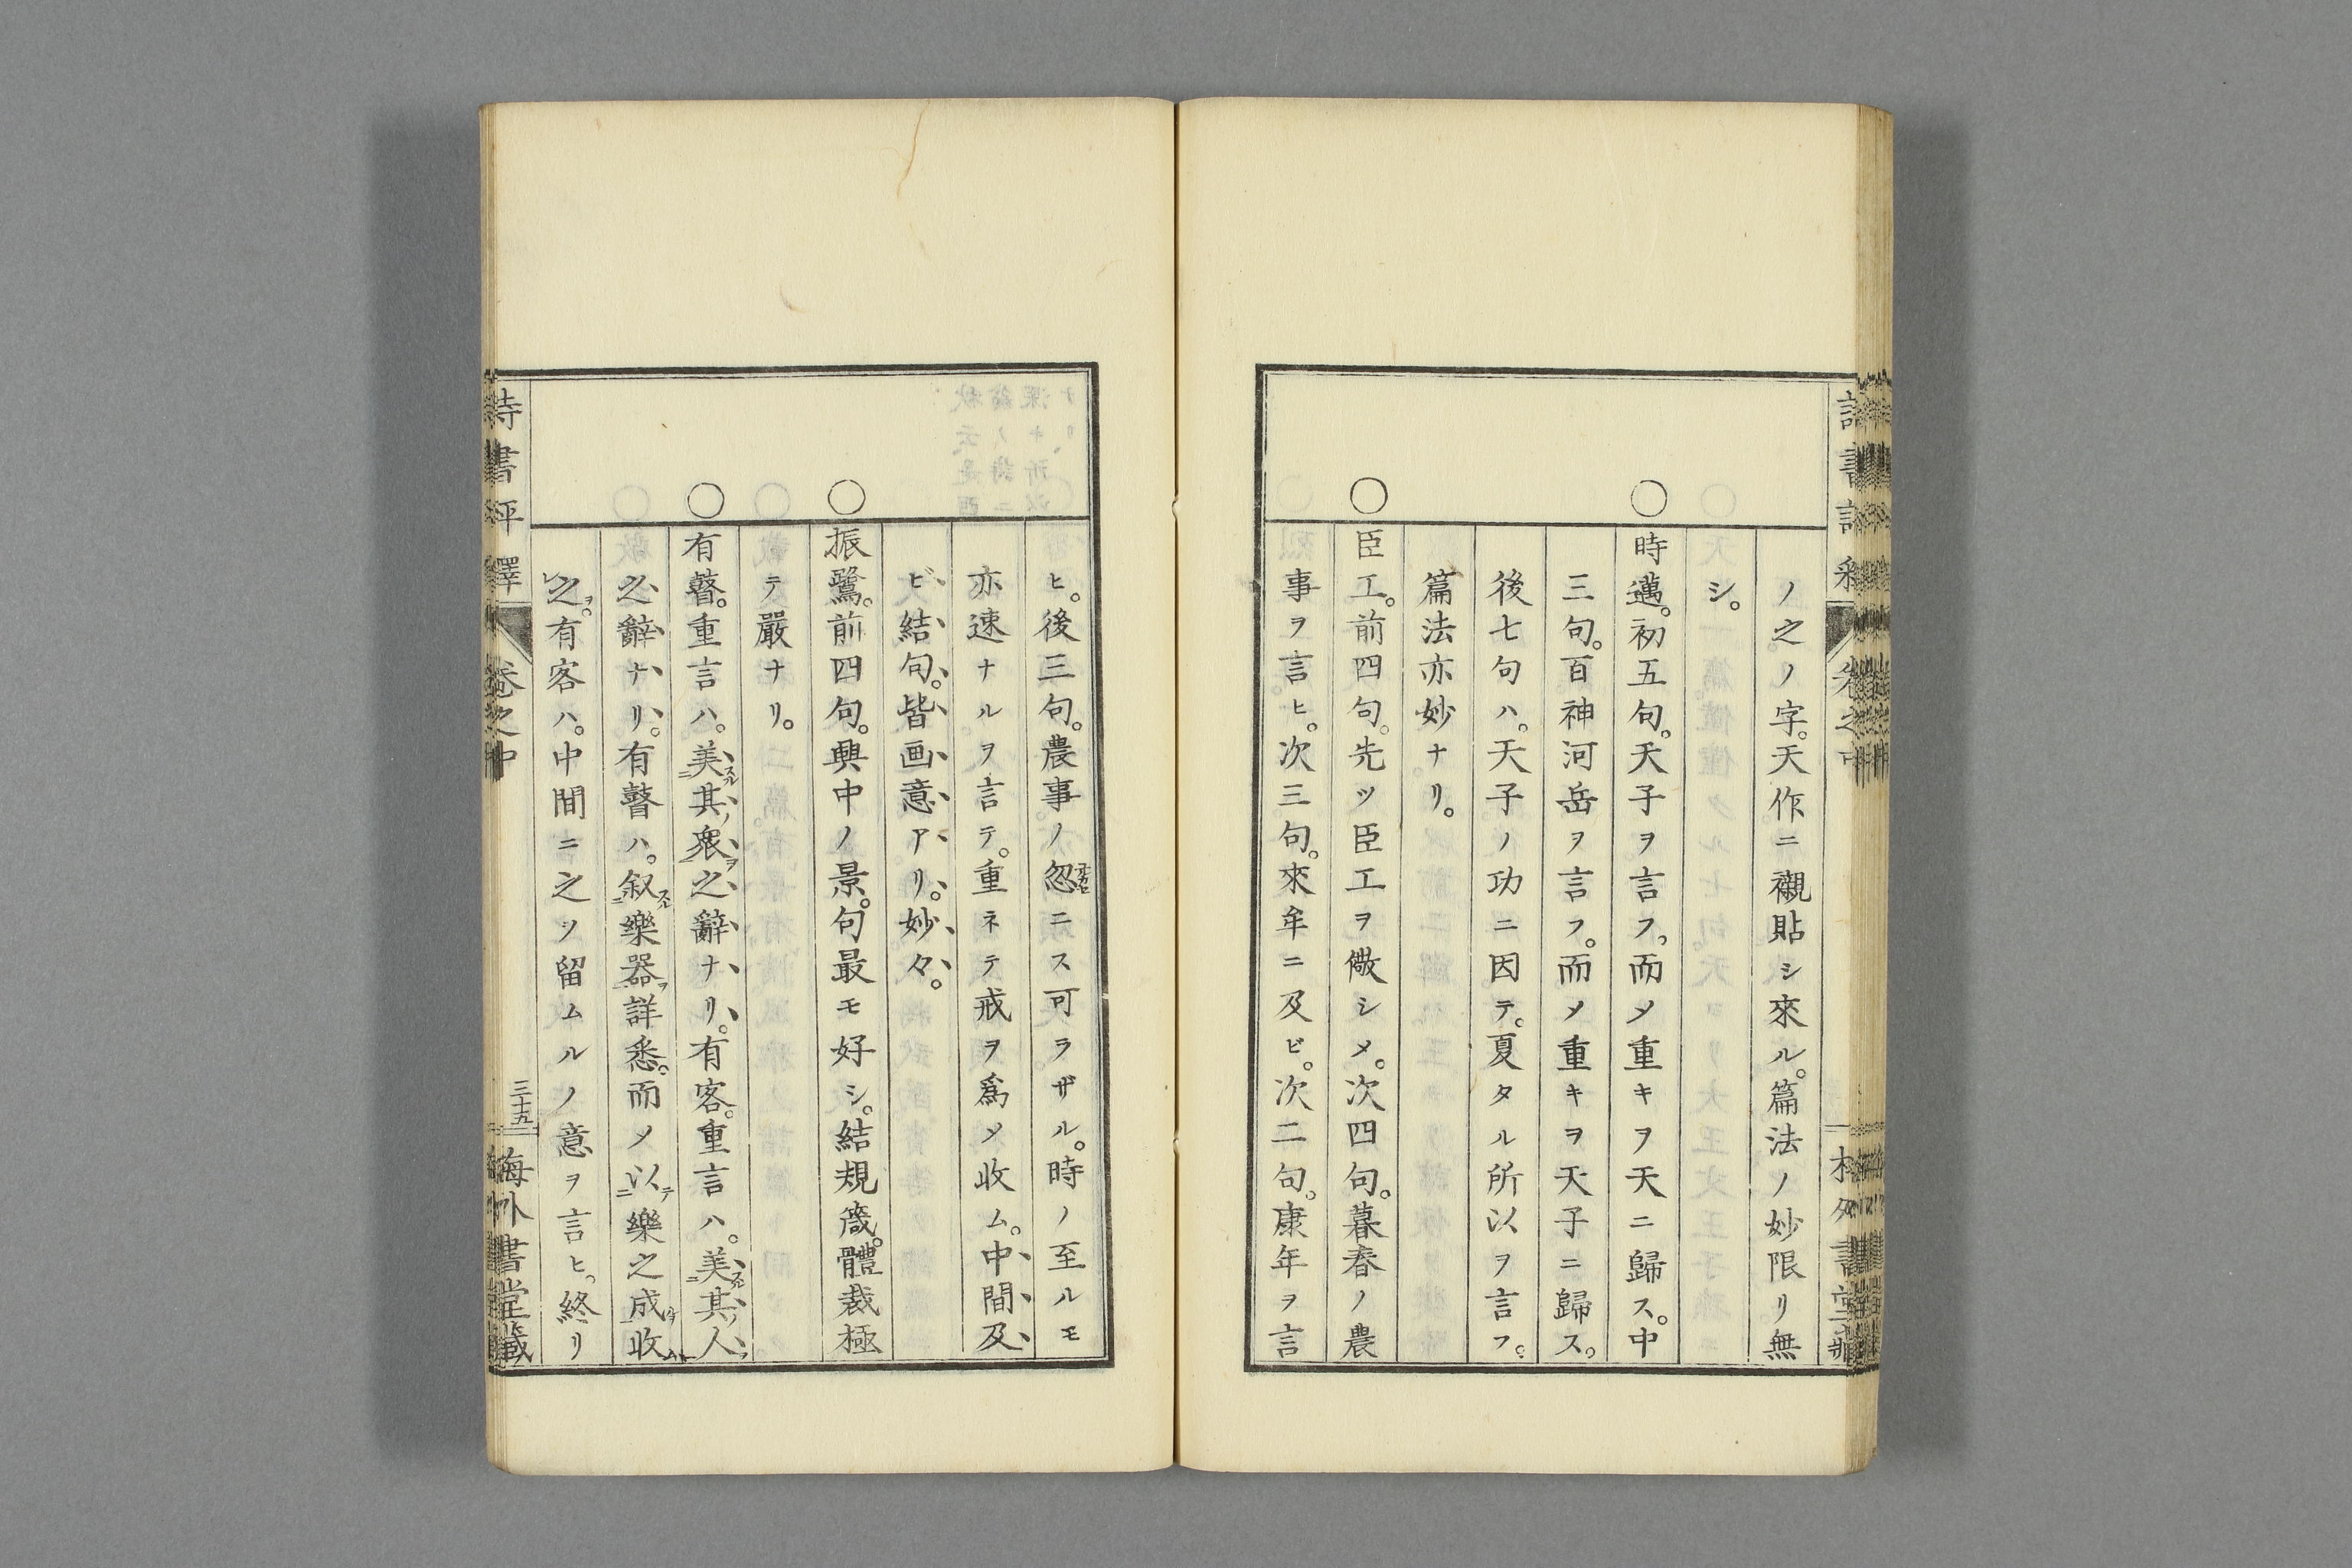 ノ之ノ字。天作ニ襯貼シ來ル。篇法ノ妙限リ無
シ。
○時邁。初五句。天子ヲ言フ。而メ重キヲ天ニ歸ス。中
三句。百神河岳ヲ言フ。而メ重キヲ天子ニ歸ス。
後七句ハ。天子ノ功ニ因テ。夏タル所以ヲ言フ。
篇法亦妙ナリ。
○臣工。前四句。先ツ臣工ヲ儆シメ。次四句。暮春ノ農
事ヲ言ヒ。次三句。來牟ニ及ビ。次二句。康年ヲ言
ヒ。後三句。農事ノ忽ニス可ラザル。時ノ至ルモ
亦速ナルヲ言テ。重ネテ戒ヲ爲メ收ム。中間及
ビ結句。皆画意アリ。妙々。
○振鷺。前四句。興中ノ景。句最モ好シ。結規箴。體裁極
テ嚴ナリ。
○有瞽。重言ハ。美スル二其ノ衆ヲ一之辭ナリ。有客。重言ハ。美スル二其ノ人ヲ一
之辭ナリ。有瞽ハ。叙スル二樂器ヲ一詳悉。而メ以テ二樂之成ルヲ一收ム
レ之ヲ。有客ハ。中間ニ之ヲ留ムルノ意ヲ言ヒ。終リ
詩書評釋
卷之中
三十五
海外書堂藏